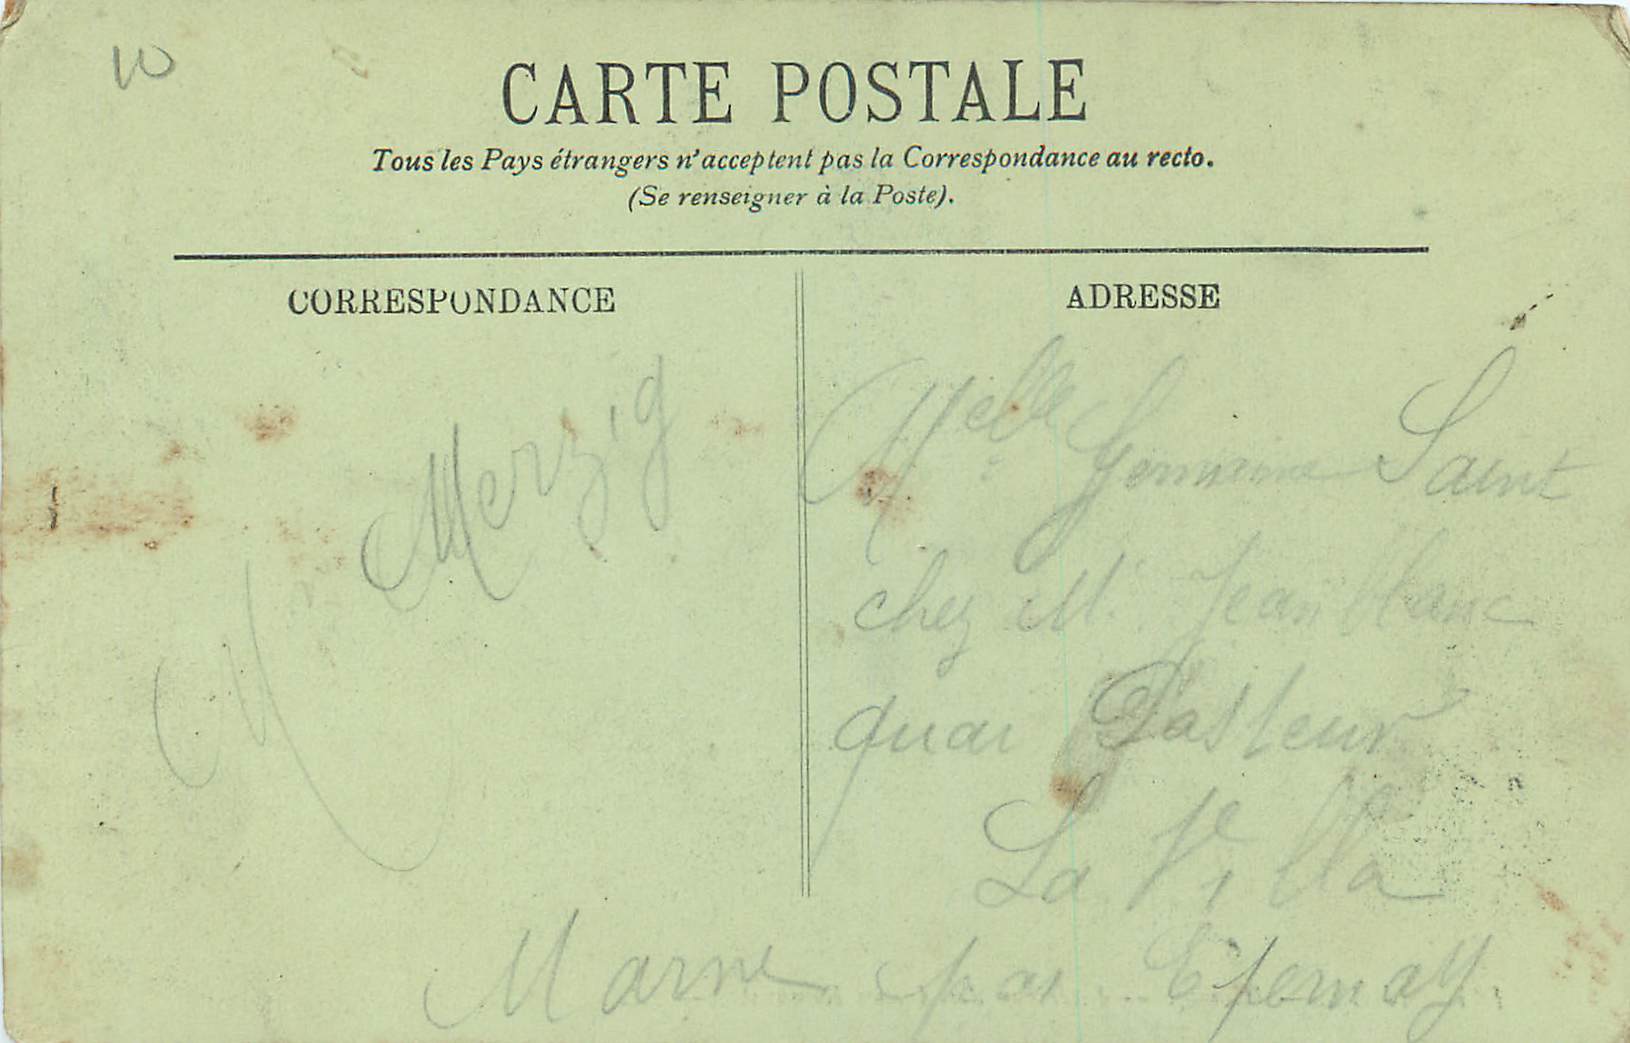 10
CARTE POSTALE
Tous les Pays étrangers n'acceptent pas la Correspondance au recto.
(Se renseigner à la Poste).
CORRESPONDANCE
Merzig
ADRESSE
Melle Germaine Saint
chez M. Jeanblanc
quai Pasteur
La Villa
Marne par Epernay.